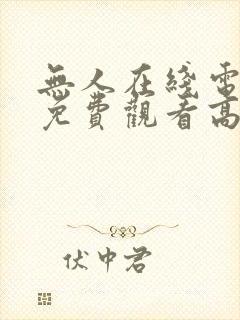 無人在綫電
免費觀看高
伏中君